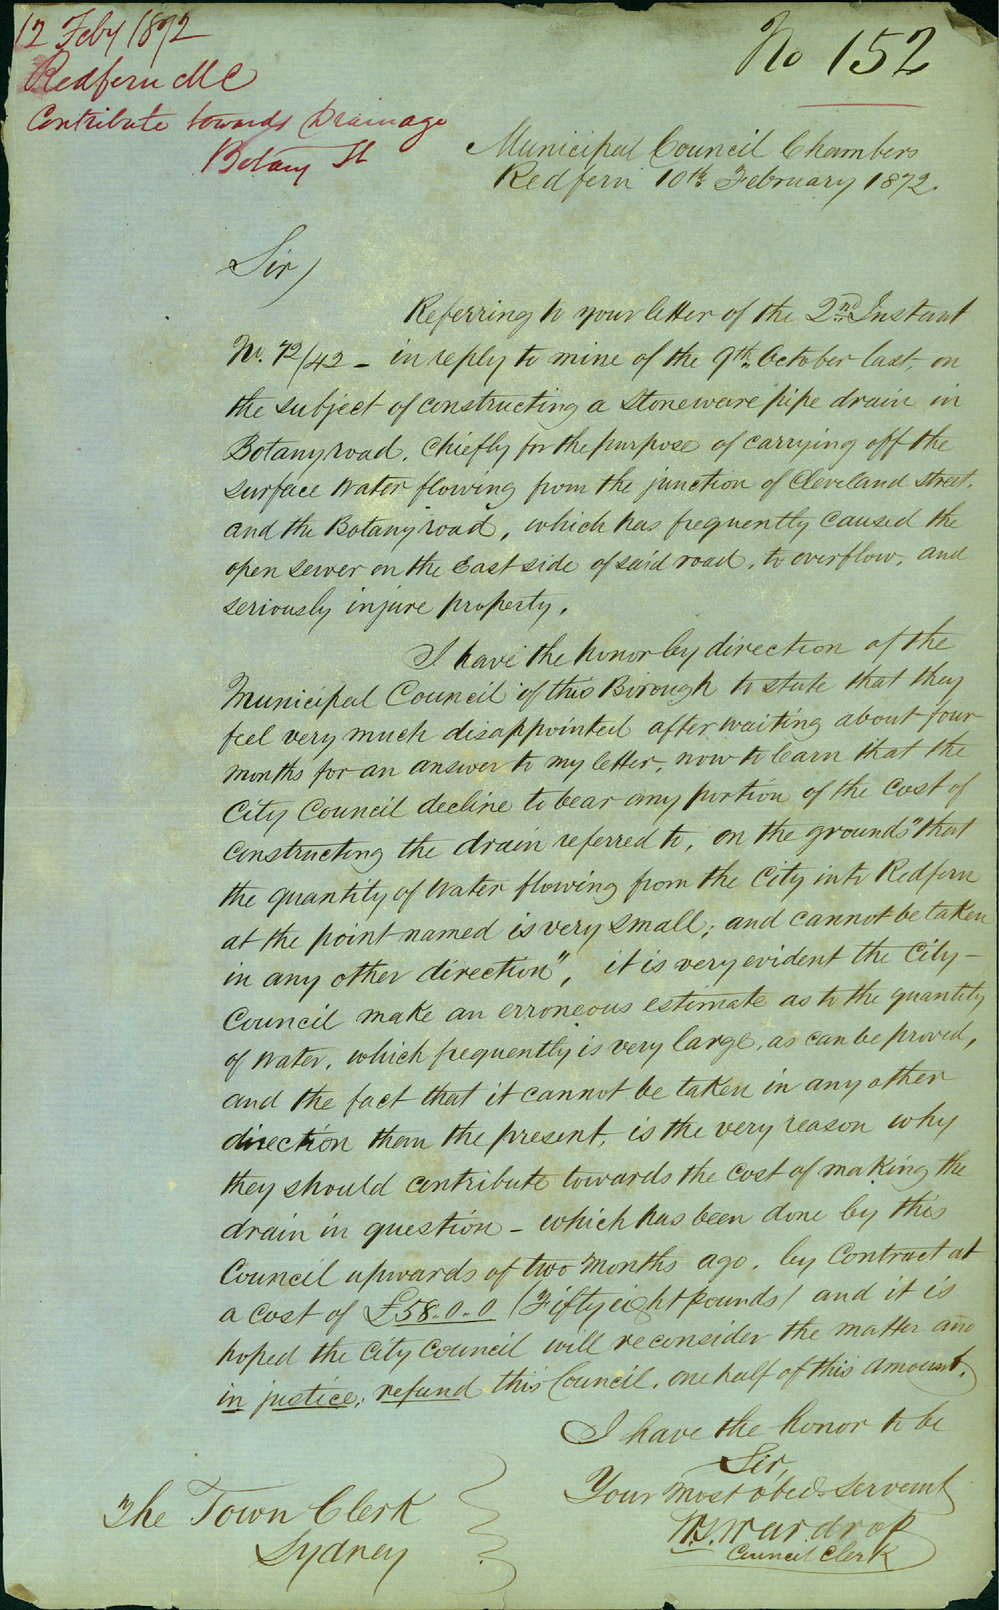 12 Feby 1872
Redfern MC
Contribute towards Drainage
Botany St
No 152
Municipal Council Chambers
Redfern 10th February 1872.
Sir,
Referring to your letter of the 2nd Instant
No. 72/42 - in reply to mine of the 9th October last, on
the subject of constructing a Stoneware pipe drain in
Botany road, chiefly for the purpose of carrying off the
surface water flowing from the junction of Cleveland street,
and the Botany road, which has frequently caused the
open sewer on the East side of said road, to overflow, and
seriously injure property.
I have the honor by direction of the
Municipal Council of this Borough to state that they
feel very much disappointed after waiting about four
months for an answer to my letter, now to learn that the
City Council decline to bear any portion of the cost of
constructing the drain referred to, on the grounds "that
the quantity of water flowing from the City into Redfern
at the point named is very small; and cannot be taken
in any other direction", it is very evident the City-
Council make an erroneous estimate as to the quantity
of water, which frequently is very large, as can be proved,
and the fact that it cannot be taken in any other
direction than the present, is the very reason why
they should contribute towards the cost of making the
drain in question - which has been done by this
Council upwards of two months ago, by Contract at
a cost of £58..0..0 (Fifty eight pounds) and it is
hoped the City Council will reconsider the matter and
in justice, refund this Council, one half of this amount.
I have the honor to be
Sir,
Your most obed. servant
Wardrop
Council Clerk
The Town Clerk
Sydney